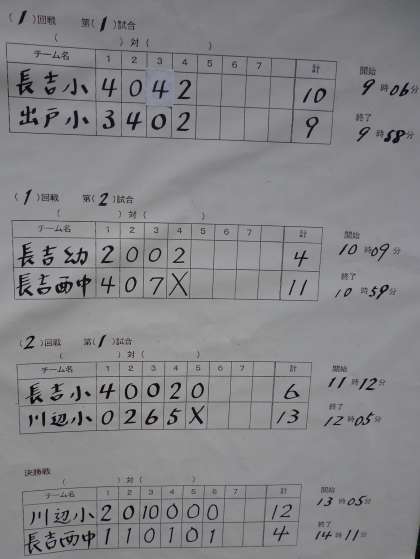 (1)回戦 第(1)試合
( ) 対 ( )
チーム名 1 2 3 4 5 6 7 計
長吉小 4 0 4 2 10
出戸小 3 4 0 2 9
開始
9時06分
終了
9時58分
(1)回戦 第(2)試合
( ) 対 ( )
チーム名 1 2 3 4 5 6 7 計
長吉幼 2 0 0 2 4
長吉西中 4 0 7 X 11
開始
10時09分
終了
10時59分
(2)回戦 第(1)試合
( ) 対 ( )
チーム名 1 2 3 4 5 6 7 計
長吉小 4 0 0 2 0 6
川辺小 0 2 6 5 X 13
開始
11時12分
終了
12時05分
決勝戦
( ) 対 ( )
チーム名 1 2 3 4 5 6 7 計
川辺小 2 0 10 0 0 0 12
長吉西中 1 1 0 1 0 1 4
開始
13時05分
終了
14時11分